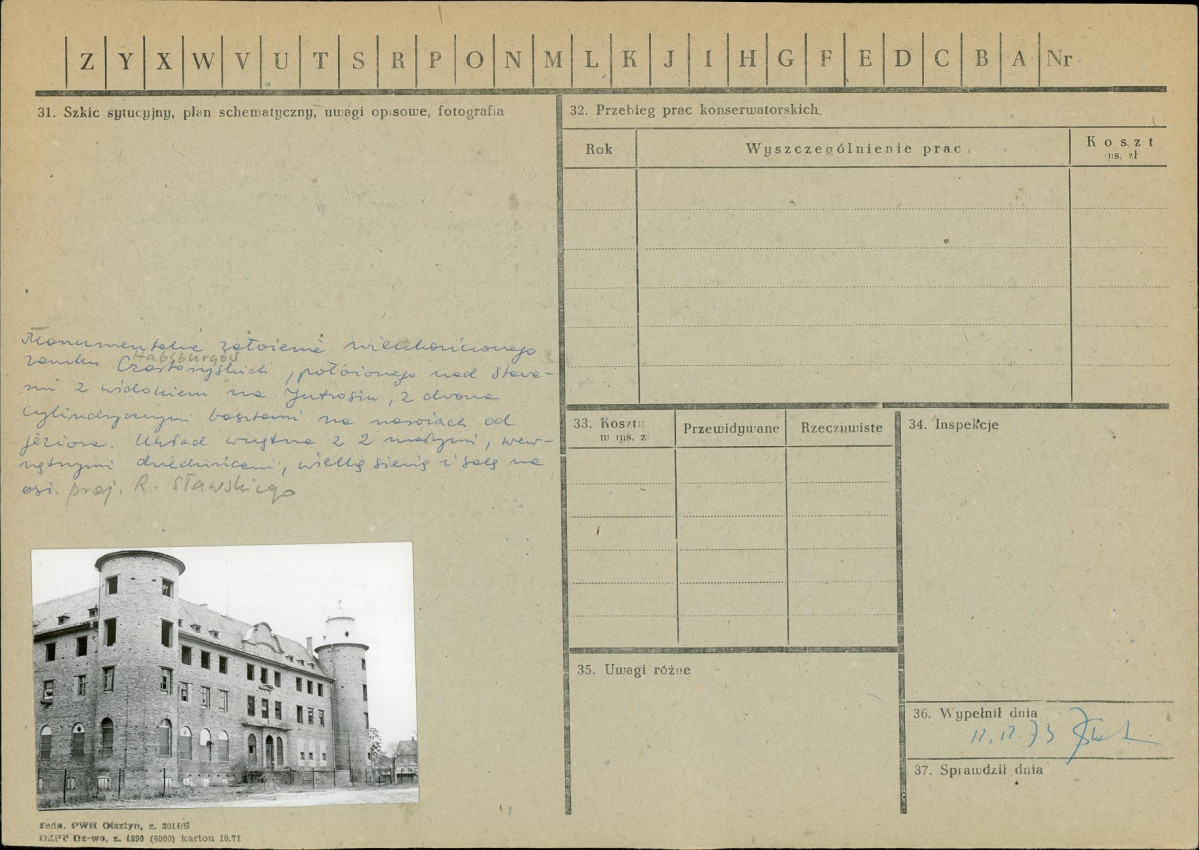 Z Y X W V U T S R P O N M L K J I H G F E D C B A Nr
31. Szkic sytucyjny, plan schematyczny, uwagi opisowe, fotografia
Monumentalne założenie wieloskrzydłowego
Habsburgów
zamku Czartoryskich, położonego nad stawa-
mi z widokiem na Jutrosin, z dwoma
cylindrycznymi basztami na narożach od
jeziora. Układ wnętrza z 2 małymi, wew-
nętrznymi dziedzińcami, wielką sienią i salą na
osi. proj. R. Sławskiego
32. Przebieg prac konserwatorskich
Rok Wyszczególnienie prac Koszt
tys. zł
33. Koszty
w tys. zł
Przewidywane Rzeczywiste
34. Inspekcje
35. Uwagi różne
36. Wypełnił dnia
12.12.73
37. Sprawdził dnia
PWH Olsztyn, z. 3014/S
z. 1899 (6000) karton 10.71